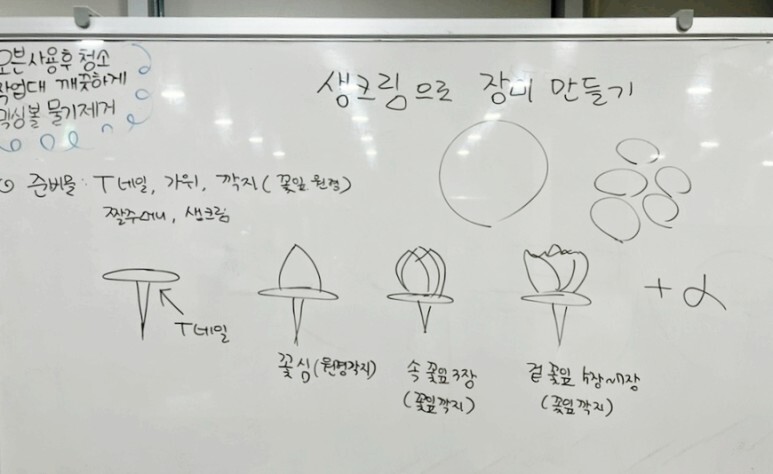 오븐사용후 청소
작업대 깨끗하게
믹싱볼 물기제거
생크림으로 장미 만들기
준비물: T네일, 가위, 깍지(꽃잎 원형)
짤주머니, 생크림
T네일
꽃심(원형깍지)
속꽃잎 3장
(꽃잎깍지)
겉꽃잎 5장~7장
(꽃잎깍지)
+α